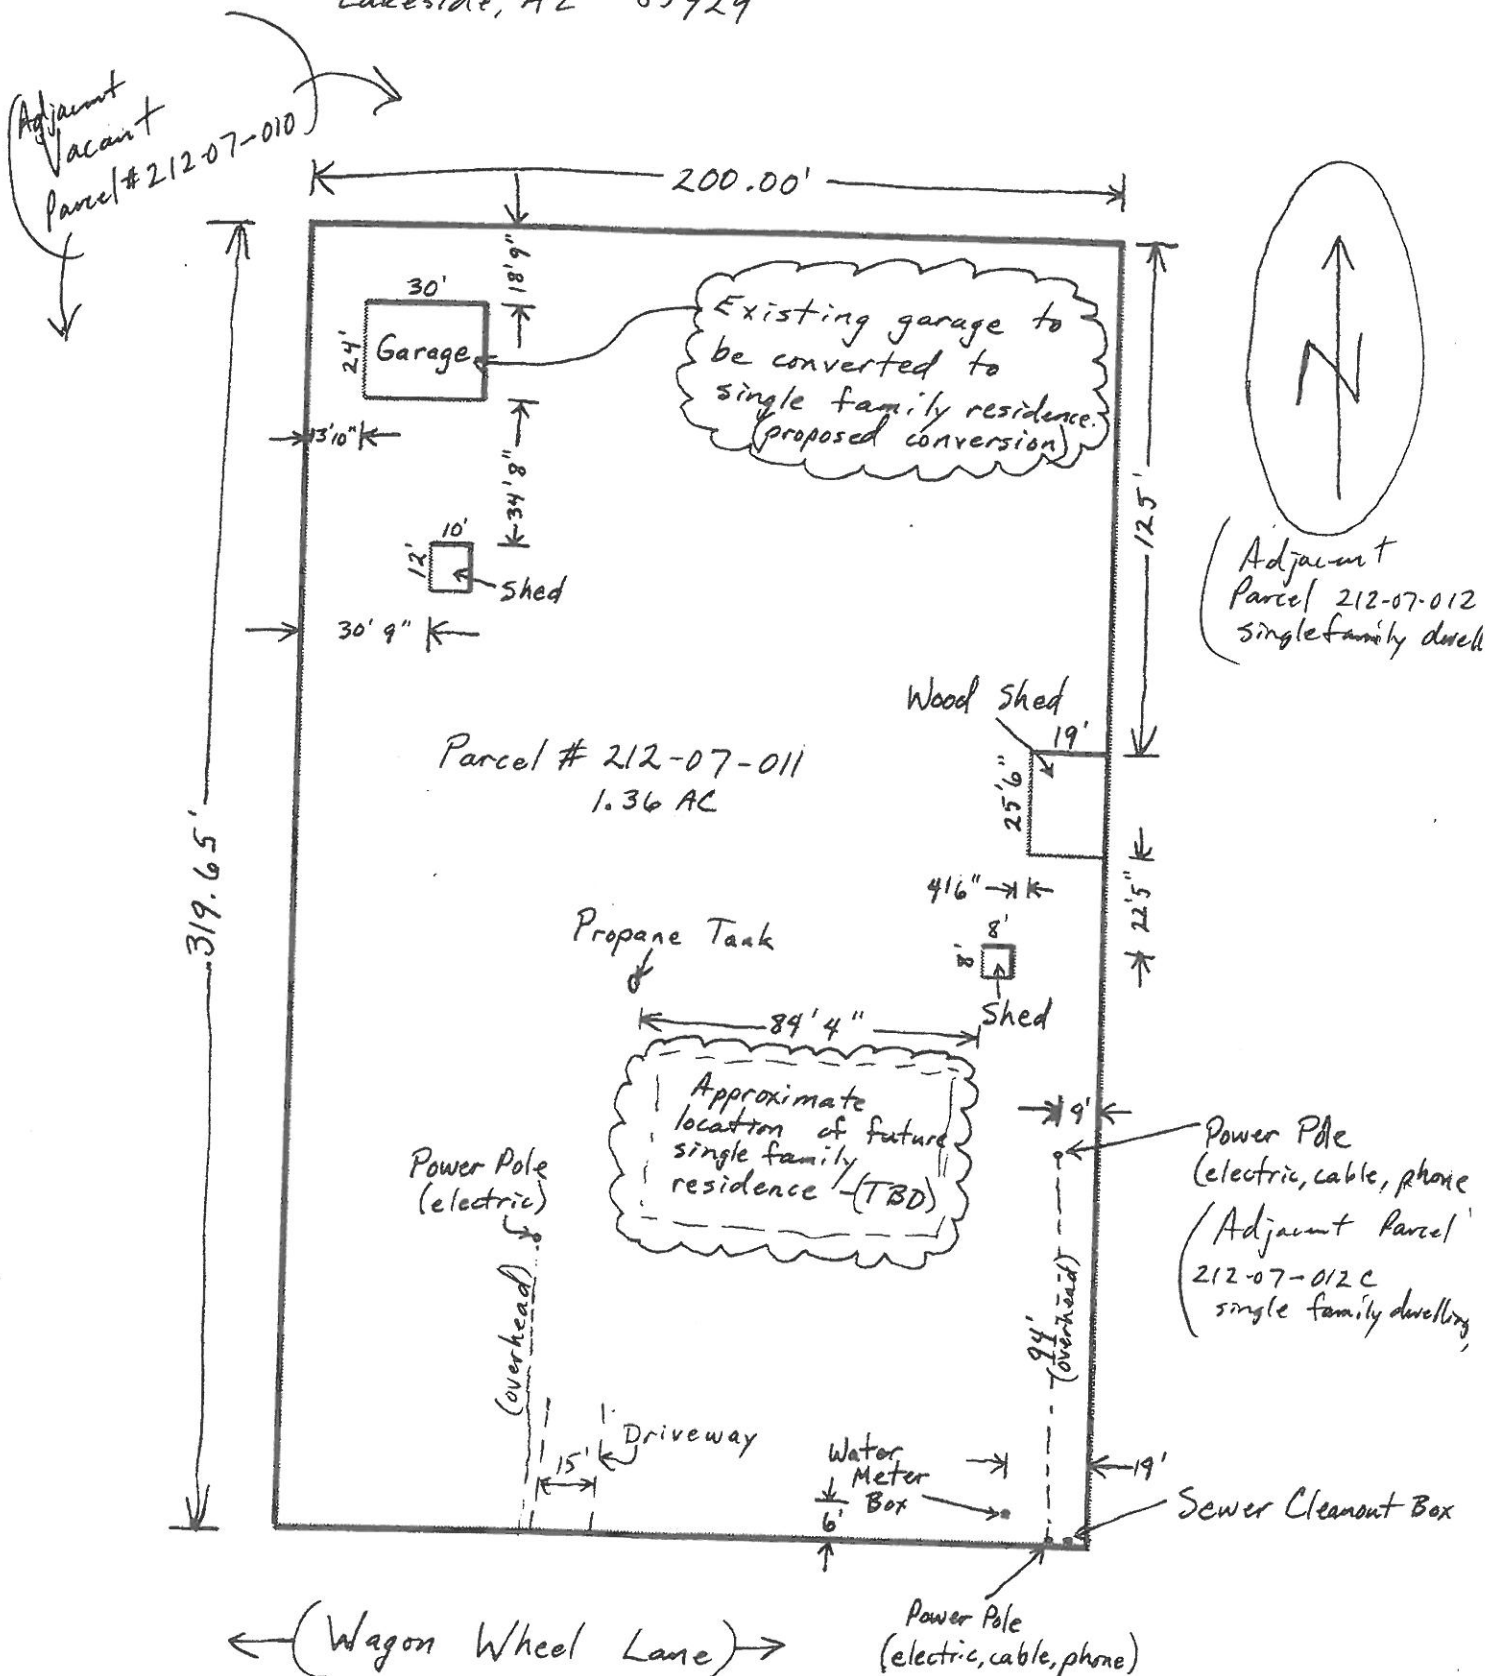 Lakeside, AZ 85929
(Adjacent
Vacant
Parcel # 212-07-010)
200.00'
18'9"
30'
24'
Garage
Existing garage to
be converted to
single family residence.
(proposed conversion)
N
13'10"
34'8"
125'
10'
12'
Shed
30'9"
(Adjacent
Parcel 212-07-012
single family dwell
Wood Shed
19'
25'6"
Parcel # 212-07-011
1.36 AC
319.65'
4'6"
22'5"
8'
8'
Shed
Propane Tank
84'4"
Approximate
location of future
single family
residence - (TBD)
9'
Power Pole
(electric, cable, phone
Power Pole
(electric)
(Adjacent Parcel
212-07-012C
single family dwelling
(overhead)
94'
(overhead)
Driveway
15'
Water
Meter
Box
6'
19'
Sewer Cleanout Box
Power Pole
(electric, cable, phone)
(Wagon Wheel Lane)